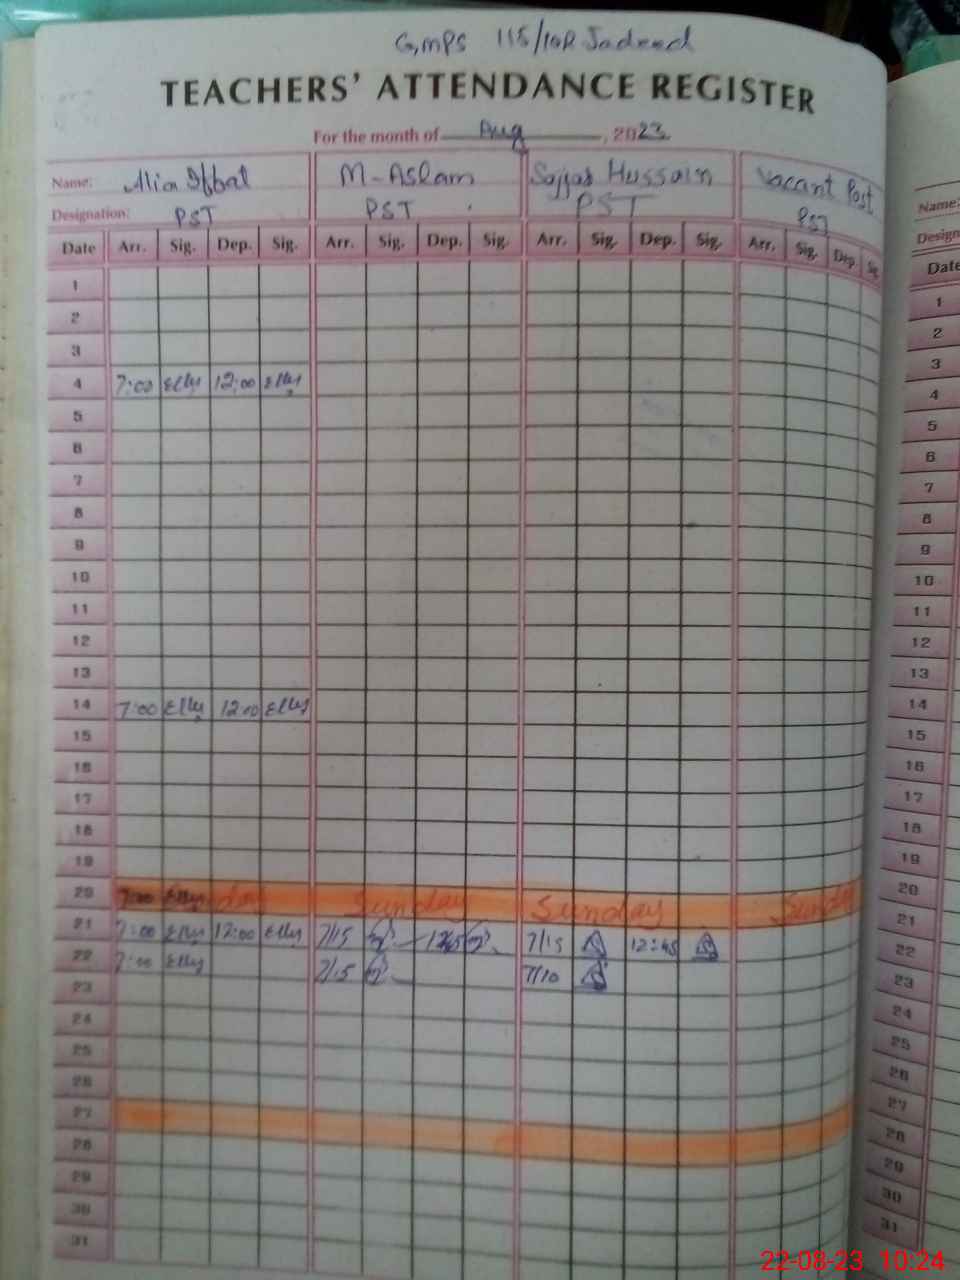 GMPS 115/10R Jadeed
TEACHERS' ATTENDANCE REGISTER
For the month of Aug, 2023
Name: Alia Iqbal M-Aslam Sajjad Hussain Vacant Post
Designation: PST PST PST PST
Date Arr. Sig. Dep. Sig. Arr. Sig. Dep. Sig. Arr. Sig. Dep. Sig. Arr. Sig. Dep. Sig.
1
2
3
4 7:00 12:00
5
6
7
8
9
10
11
12
13
14 7:00 12:00
15
16
17
18
19
20 7:00 Sunday Sunday Sunday
21 7:00 12:00 7/15 1245 7/15 12:45
22 7:00 7/15 7/10
23
24
25
26
27
28
29
30
31
Name:
Design
Date
1
2
3
4
5
6
7
8
9
10
11
12
13
14
15
16
17
18
19
20
21
22
23
24
25
26
27
28
29
30
31
22-08-23 10:24